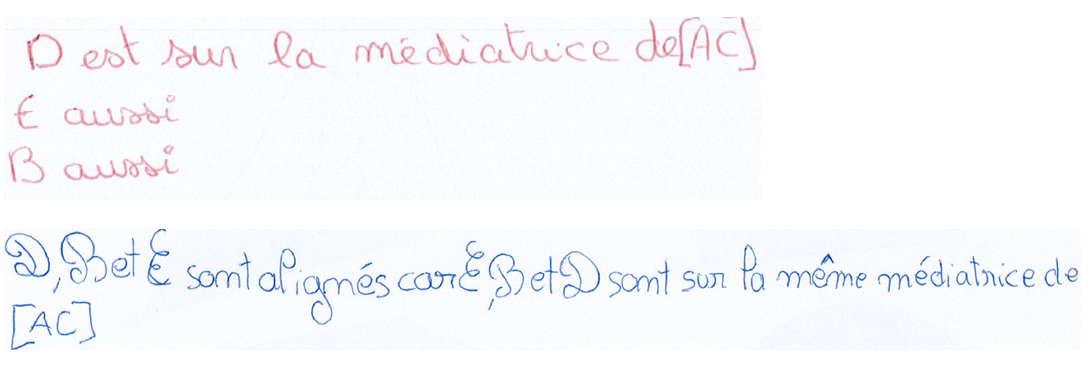 D est sur la médiatrice de[AC]
E aussi
B aussi
D, B et E sont alignés car E, B et D sont sur la même médiatrice de
[AC]